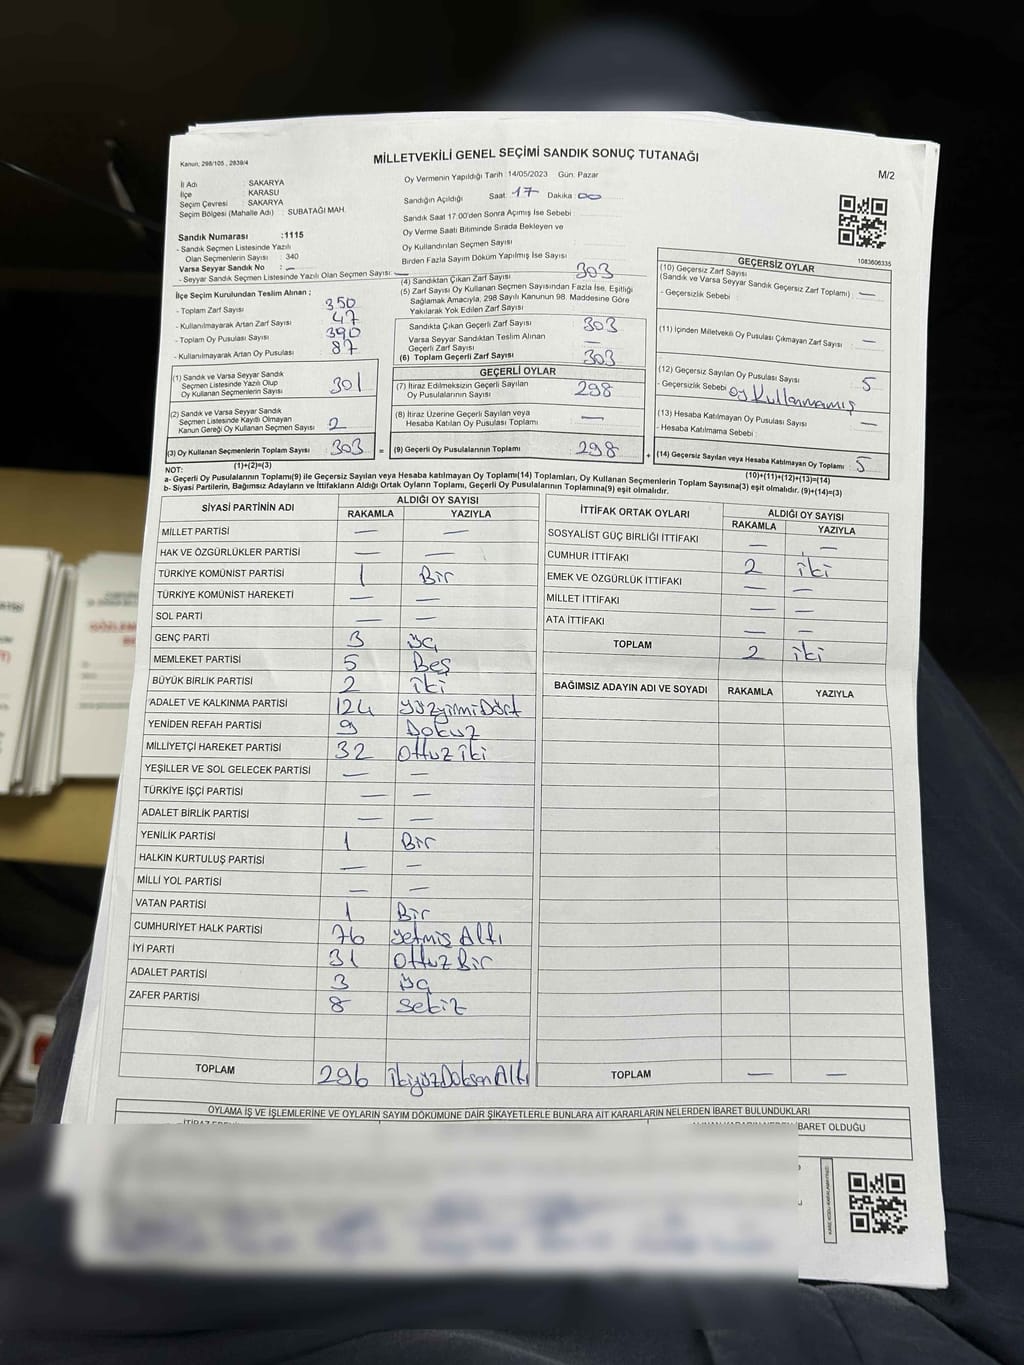 Kanun; 298/105 , 2839/4
MİLLETVEKİLİ GENEL SEÇİMİ SANDIK SONUÇ TUTANAĞI
M/2
İl Adı : SAKARYA
İlçe : KARASU
Seçim Çevresi : SAKARYA
Seçim Bölgesi (Mahalle Adı) : SUBATAĞI MAH.
Sandık Numarası :1115
- Sandık Seçmen Listesinde Yazılı
Olan Seçmenlerin Sayısı : 340
Varsa Seyyar Sandık No : —
- Seyyar Sandık Seçmen Listesinde Yazılı Olan Seçmen Sayısı: —
Oy Vermenin Yapıldığı Tarih :14/05/2023 Gün: Pazar
Sandığın Açıldığı Saat: 17 Dakika: 00
Sandık Saat 17:00'den Sonra Açımış İse Sebebi
Oy Verme Saati Bitiminde Sırada Bekleyen ve
Oy Kullandırılan Seçmen Sayısı
Birden Fazla Sayım Döküm Yapılmış İse Sayısı
1083606335
İlçe Seçim Kurulundan Teslim Alınan ;
- Toplam Zarf Sayısı 350
- Kullanılmayarak Artan Zarf Sayısı 47
- Toplam Oy Pusulası Sayısı 390
- Kullanılmayarak Artan Oy Pusulası 87
(1) Sandık ve Varsa Seyyar Sandık
Seçmen Listesinde Yazılı Olup
Oy Kullanan Seçmenlerin Sayısı 301
(2) Sandık ve Varsa Seyyar Sandık
Seçmen Listesinde Kayıtlı Olmayan
Kanun Gereği Oy Kullanan Seçmen Sayısı 2
(3) Oy Kullanan Seçmenlerin Toplam Sayısı 303 =
(1)+(2)=(3)
(4) Sandıktan Çıkan Zarf Sayısı 303
(5) Zarf Sayısı Oy Kullanan Seçmen Sayısından Fazla İse, Eşitliği
Sağlamak Amacıyla, 298 Sayılı Kanunun 98. Maddesine Göre
Yakılarak Yok Edilen Zarf Sayısı
Sandıkta Çıkan Geçerli Zarf Sayısı 303
Varsa Seyyar Sandıktan Teslim Alınan
Geçerli Zarf Sayısı —
(6) Toplam Geçerli Zarf Sayısı 303
GEÇERLİ OYLAR
(7) İtiraz Edilmeksizin Geçerli Sayılan
Oy Pusulalarının Sayısı 298
(8) İtiraz Üzerine Geçerli Sayılan veya
Hesaba Katılan Oy Pusulası Toplamı —
(9) Geçerli Oy Pusulalarının Toplamı 298 +
GEÇERSİZ OYLAR
(10) Geçersiz Zarf Sayısı
(Sandık ve Varsa Seyyar Sandık Geçersiz Zarf Toplamı) : —
- Geçersizlik Sebebi :
(11) İçinden Milletvekili Oy Pusulası Çıkmayan Zarf Sayısı : —
(12) Geçersiz Sayılan Oy Pusulası Sayısı : 5
- Geçersizlik Sebebi : oy Kullanmamış
(13) Hesaba Katılmayan Oy Pusulası Sayısı : —
- Hesaba Katılmama Sebebi :
(14) Geçersiz Sayılan veya Hesaba Katılmayan Oy Toplamı : 5
(10)+(11)+(12)+(13)=(14)
NOT:
a- Geçerli Oy Pusulalarının Toplamı(9) ile Geçersiz Sayılan veya Hesaba Katılmayan Oy Toplamı(14) Toplamları, Oy Kullanan Seçmenlerin Toplam Sayısına(3) eşit olmalıdır. (9)+(14)=(3)
b- Siyasi Partilerin, Bağımsız Adayların ve İttifakların Aldığı Ortak Oyların Toplamı, Geçerli Oy Pusulalarının Toplamına(9) eşit olmalıdır.
SİYASİ PARTİNİN ADI ALDIĞI OY SAYISI
RAKAMLA YAZIYLA
MİLLET PARTİSİ — —
HAK VE ÖZGÜRLÜKLER PARTİSİ — —
TÜRKİYE KOMÜNİST PARTİSİ 1 Bir
TÜRKİYE KOMÜNİST HAREKETİ — —
SOL PARTİ — —
GENÇ PARTİ 3 üç
MEMLEKET PARTİSİ 5 Beş
BÜYÜK BİRLİK PARTİSİ 2 iki
ADALET VE KALKINMA PARTİSİ 124 yüzyirmiDört
YENİDEN REFAH PARTİSİ 9 Dokuz
MİLLİYETÇİ HAREKET PARTİSİ 32 Ottuz iki
YEŞİLLER VE SOL GELECEK PARTİSİ — —
TÜRKİYE İŞÇİ PARTİSİ — —
ADALET BİRLİK PARTİSİ — —
YENİLİK PARTİSİ 1 Bir
HALKIN KURTULUŞ PARTİSİ — —
MİLLİ YOL PARTİSİ — —
VATAN PARTİSİ 1 Bir
CUMHURİYET HALK PARTİSİ 76 yetmiş Altı
İYİ PARTİ 31 Ottuz Bir
ADALET PARTİSİ 3 üç
ZAFER PARTİSİ 8 Sekiz
TOPLAM 296 ikiyüzDoksanAltı
İTTİFAK ORTAK OYLARI ALDIĞI OY SAYISI
RAKAMLA YAZIYLA
SOSYALİST GÜÇ BİRLİĞİ İTTİFAKI — —
CUMHUR İTTİFAKI 2 iki
EMEK VE ÖZGÜRLÜK İTTİFAKI — —
MİLLET İTTİFAKI — —
ATA İTTİFAKI — —
TOPLAM 2 iki
BAĞIMSIZ ADAYIN ADI VE SOYADI RAKAMLA YAZIYLA
TOPLAM — —
OYLAMA İŞ VE İŞLEMLERİNE VE OYLARIN SAYIM DÖKÜMÜNE DAİR ŞİKAYETLERLE BUNLARA AİT KARARLARIN NELERDEN İBARET BULUNDUKLARI
İBARET OLDUĞU